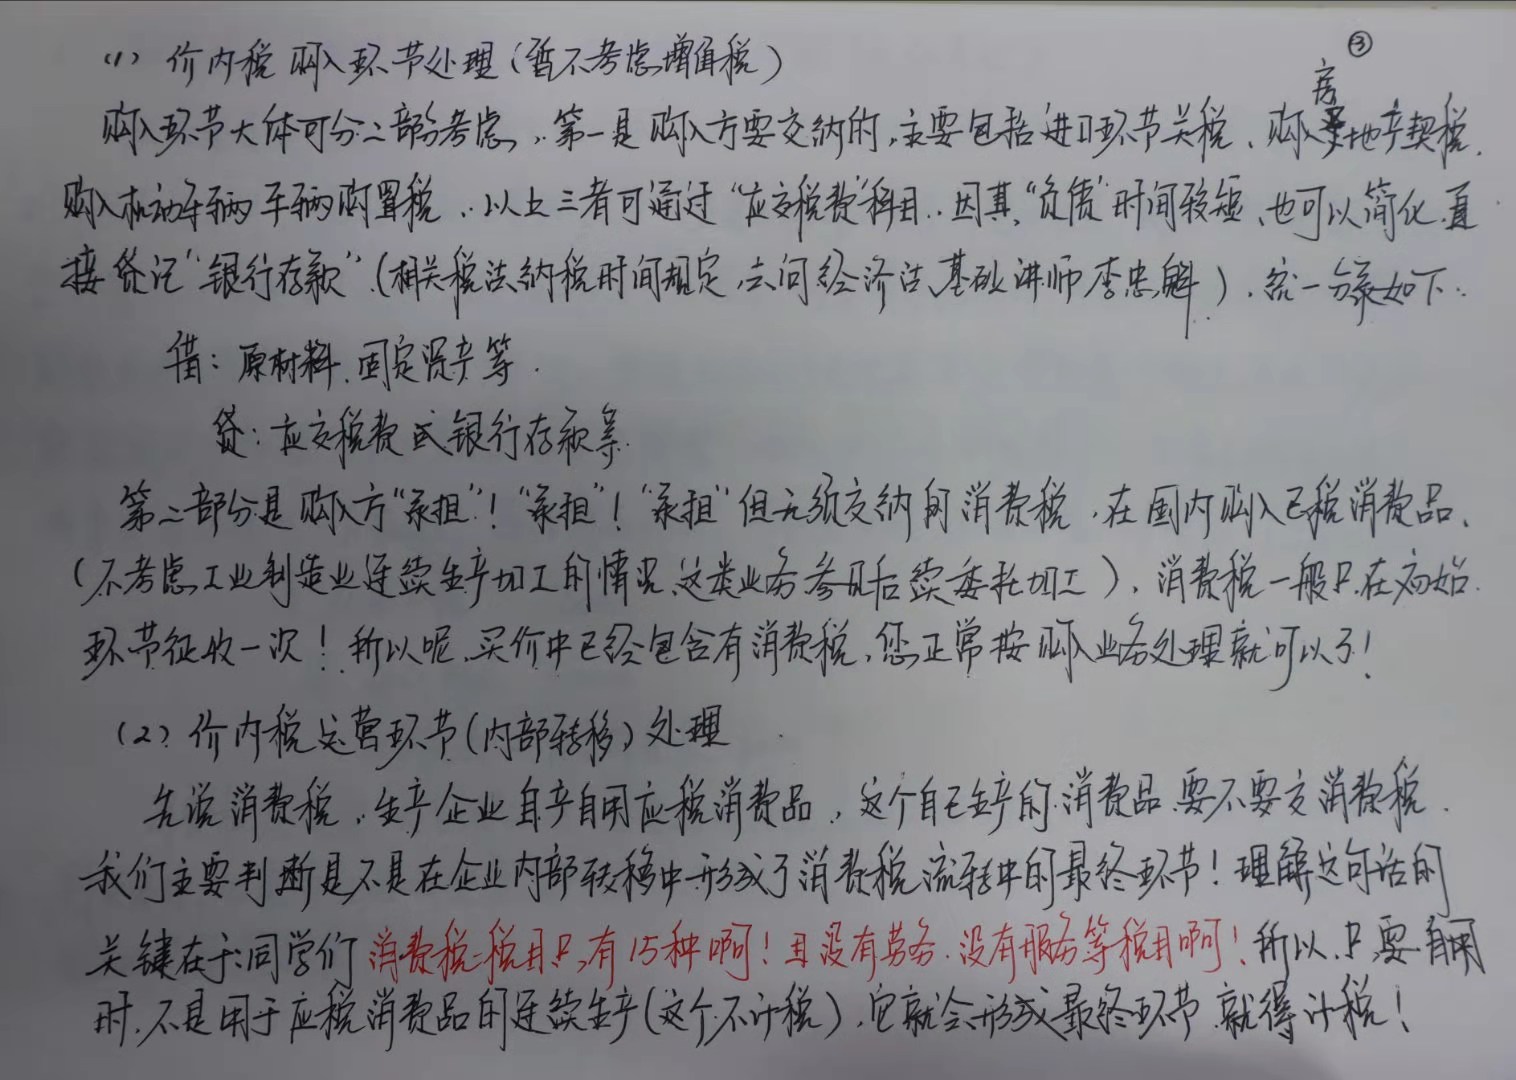 ③
(1) 价内税购入环节处理(暂不考虑增值税)
购入环节大体可分二部分考虑,第一是购入方要交纳的,主要包括进口环节关税、购入房地产契税、
购入机动车辆车辆购置税。以上三者可通过“应交税费”科目。因其“负债”时间较短,也可以简化直
接贷记“银行存款”(相关税法纳税时间规定,去问经济法基础讲师李忠魁)。统一分录如下:
借:原材料、固定资产等
贷:应交税费或银行存款等
第二部分是购入方“承担”!“承担”!“承担”但无须交纳的消费税,在国内购入已税消费品,
(不考虑工业制造业连续生产加工的情况,这类业务参见后续委托加工),消费税一般只在初始
环节征收一次!所以呢,买价中已经包含有消费税,您正常按购入业务处理就可以了!
(2)价内税运营环节(内部转移)处理
先说消费税,生产企业自产自用应税消费品,这个自己生产的消费品要不要交消费税,
我们主要判断是不是在企业内部转移中形成了消费税流转中的最终环节!理解这句话的
关键在于:同学们消费税税目只有15种啊!且没有劳务、没有服务等税目啊!所以,只要自用
时,不是用于应税消费品的连续生产(这个不计税),它就会形成最终环节,就得计税!